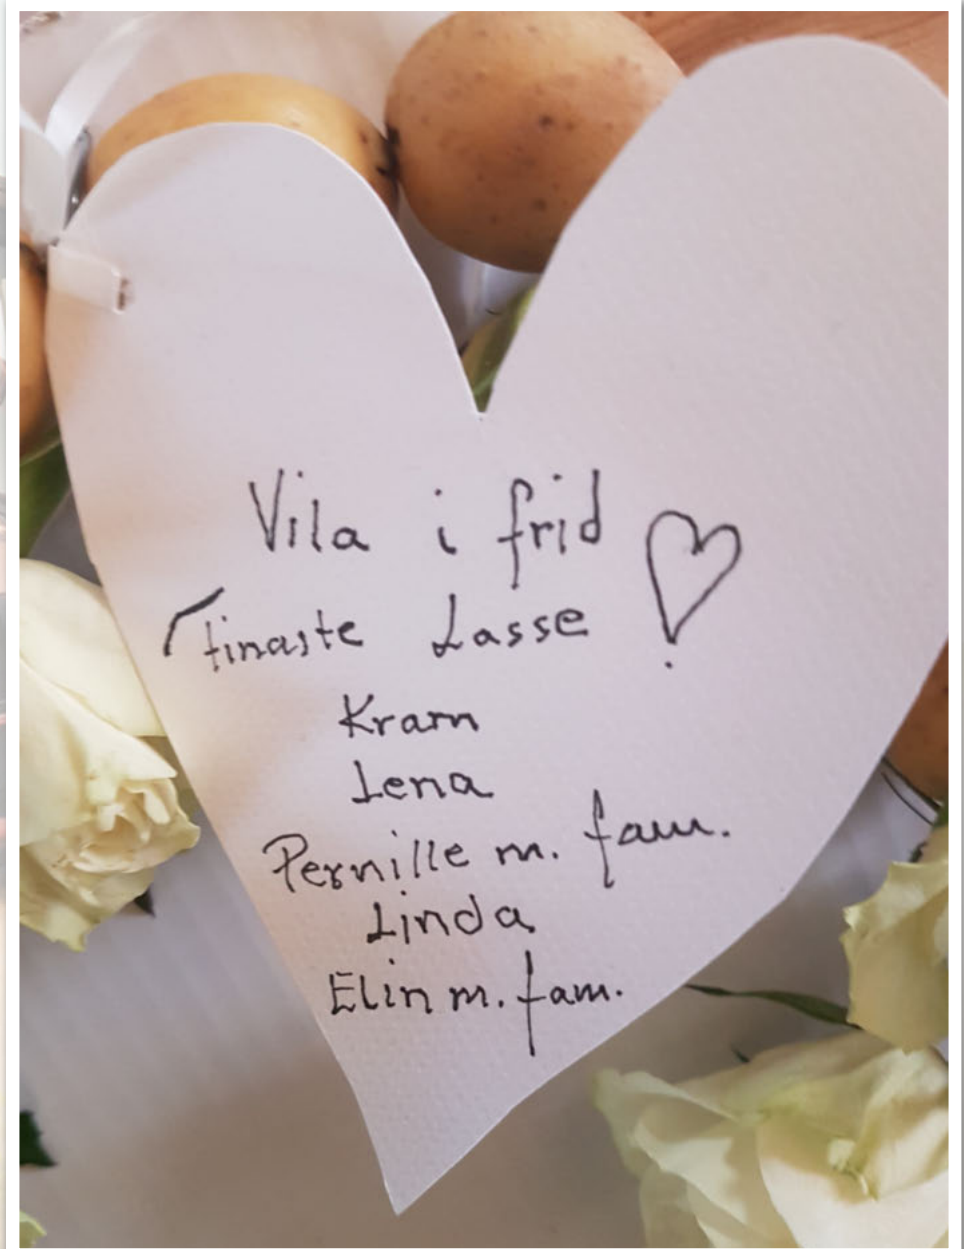 Vila i frid
finaste Lasse
Kram
Lena
Pernille m. fam.
Linda
Elin m. fam.